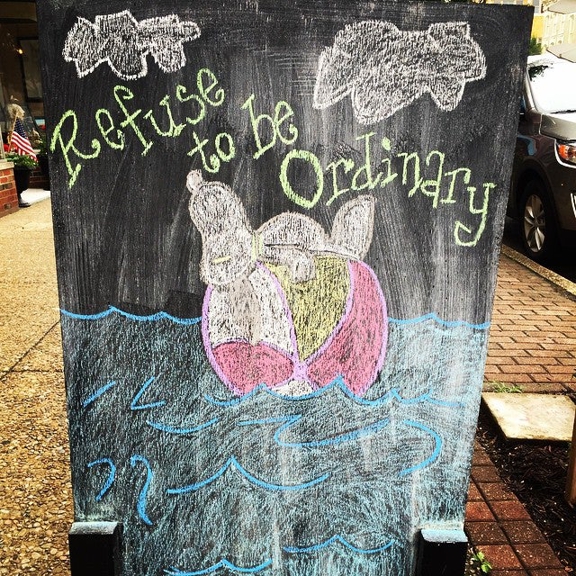 Refuse
to be
Ordinary